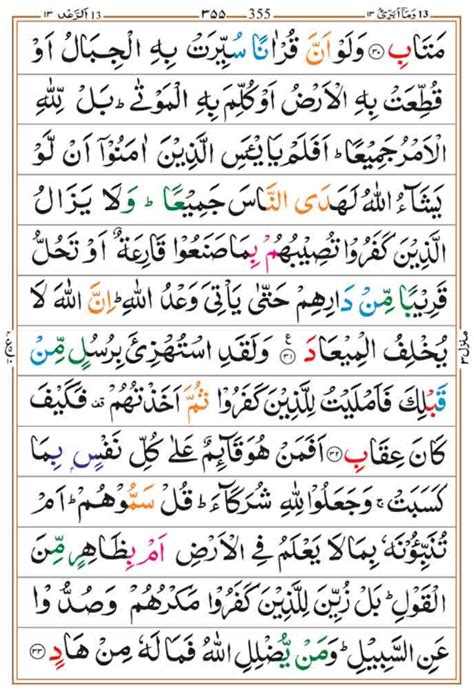 ١٣ اَلرَّعْد 13 ٣٥٥ 355 وَمَآ اُبَرِّئُ ١٣ 13
مَتَابِ ﴿٣٠﴾ وَلَوْ اَنَّ قُرْاٰنًا سُيِّرَتْ بِهِ الْجِبَالُ اَوْ
قُطِّعَتْ بِهِ الْاَرْضُ اَوْ كُلِّمَ بِهِ الْمَوْتٰىؕ بَلْ لِّلّٰهِ
الْاَمْرُ جَمِيْعًاؕ اَفَلَمْ يَايْـَٔسِ الَّذِيْنَ اٰمَنُوْۤا اَنْ لَّوْ
يَشَآءُ اللّٰهُ لَهَدَى النَّاسَ جَمِيْعًاؕ وَلَا يَزَالُ
الَّذِيْنَ كَفَرُوْا تُصِيْبُهُمْ بِمَا صَنَعُوْا قَارِعَةٌ اَوْ تَحُلُّ
قَرِيْبًا مِّنْ دَارِهِمْ حَتّٰى يَاْتِيَ وَعْدُ اللّٰهِؕ اِنَّ اللّٰهَ لَا
يُخْلِفُ الْمِيْعَادَ ﴿٣١﴾ وَلَقَدِ اسْتُهْزِئَ بِرُسُلٍ مِّنْ
قَبْلِكَ فَاَمْلَيْتُ لِلَّذِيْنَ كَفَرُوْا ثُمَّ اَخَذْتُهُمْ فَكَيْفَ
كَانَ عِقَابِ ﴿٣٢﴾ اَفَمَنْ هُوَ قَآئِمٌ عَلٰى كُلِّ نَفْسٍۢ بِمَا
كَسَبَتْۚ وَجَعَلُوْا لِلّٰهِ شُرَكَآءَؕ قُلْ سَمُّوْهُمْؕ اَمْ
تُنَبِّـُٔوْنَهٗ بِمَا لَا يَعْلَمُ فِى الْاَرْضِ اَمْ بِظَاهِرٍ مِّنَ
الْقَوْلِؕ بَلْ زُيِّنَ لِلَّذِيْنَ كَفَرُوْا مَكْرُهُمْ وَصُدُّوْا
عَنِ السَّبِيْلِؕ وَمَنْ يُّضْلِلِ اللّٰهُ فَمَا لَهٗ مِنْ هَادٍ ﴿٣٣﴾